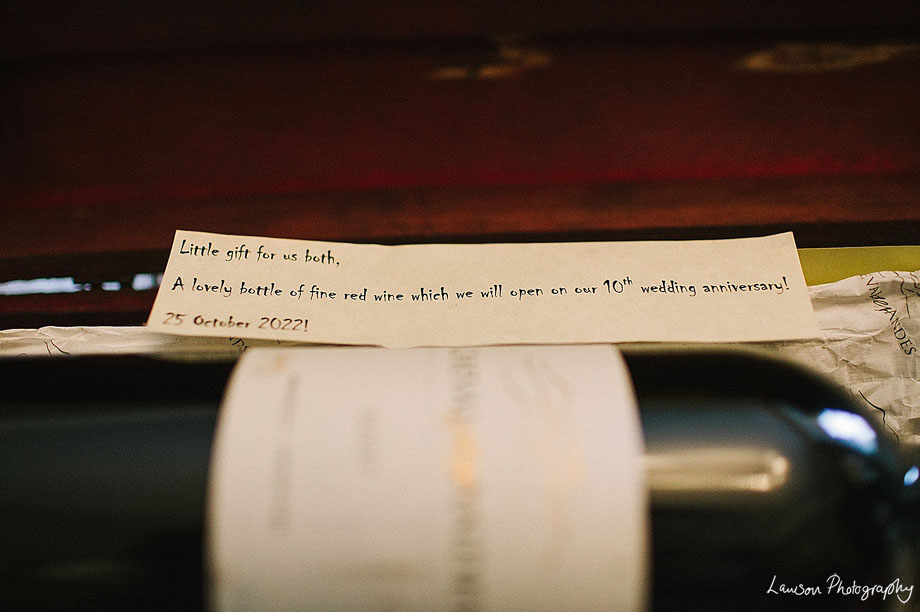 Little gift for us both,
A lovely bottle of fine red wine which we will open on our 10th wedding anniversary!
25 October 2022!
Lawson Photography